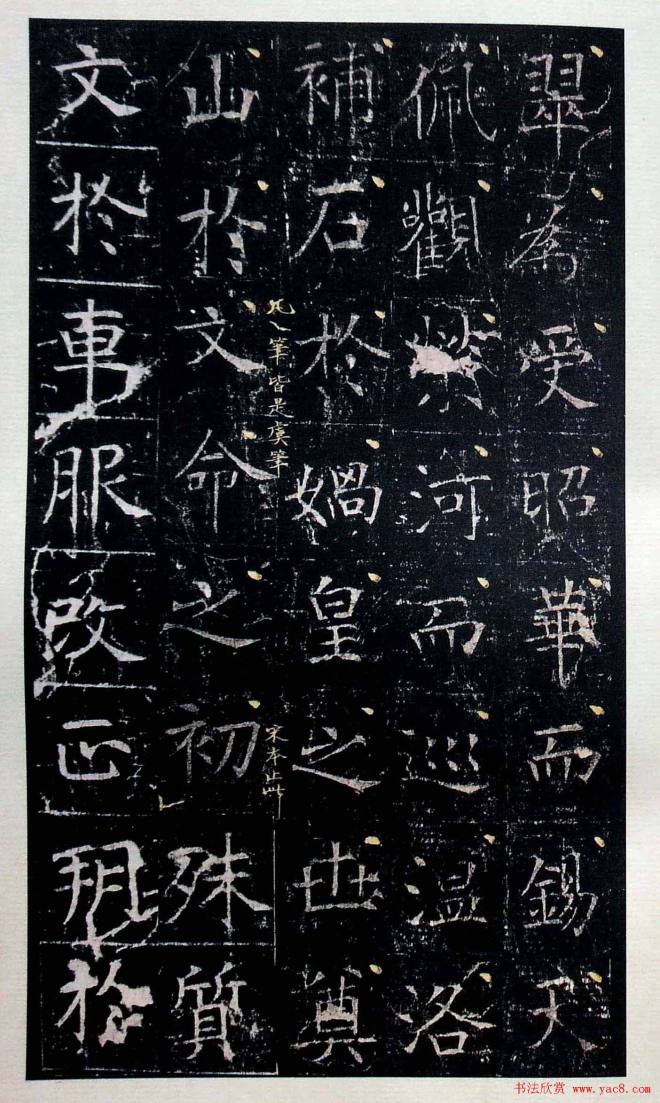 翠為受昭華而錫天
佩觀榮河而巡溫洛
補石於媧皇之世奠
凡乀筆皆是虞筆
宋本止此
山於文命之初殊質
文於車服改正朔於
书法欣赏 www.yac8.com